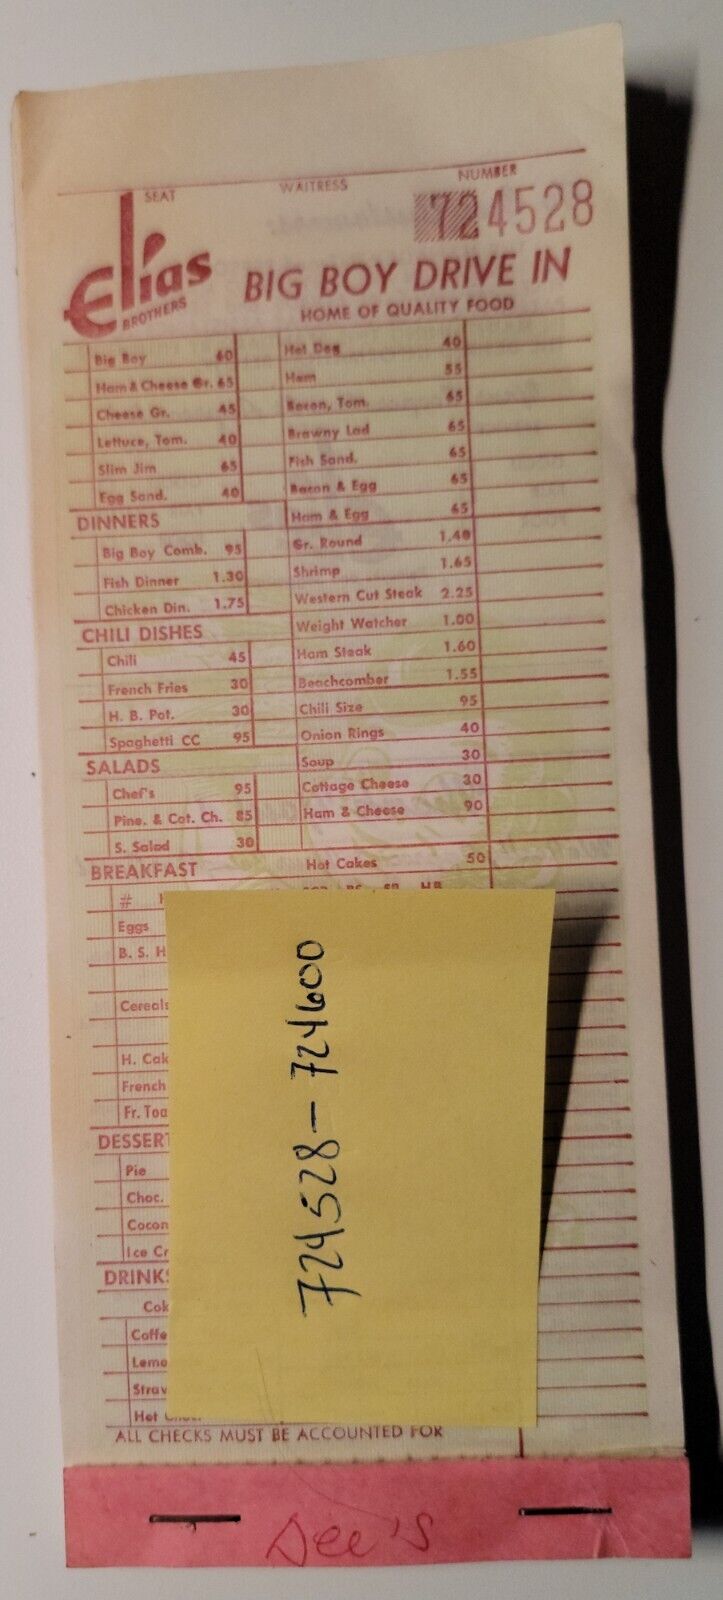 SEAT WAITRESS NUMBER
724528
Elias BROTHERS
BIG BOY DRIVE IN
HOME OF QUALITY FOOD
Big Boy 60
Ham & Cheese Gr. 65
Cheese Gr. 45
Lettuce, Tom. 40
Slim Jim 65
Egg Sand. 40
DINNERS
Big Boy Comb. 95
Fish Dinner 1.30
Chicken Din. 1.75
CHILI DISHES
Chili 45
French Fries 30
H. B. Pot. 30
Spaghetti CC 95
SALADS
Chef's 95
Pine. & Cot. Ch. 85
S. Salad 30
Hot Dog 40
Ham 55
Bacon, Tom. 65
Brawny Lad 65
Fish Sand. 65
Bacon & Egg 65
Ham & Egg 65
Gr. Round 1.40
Shrimp 1.65
Western Cut Steak 2.25
Weight Watcher 1.00
Ham Steak 1.60
Beachcomber 1.55
Chili Size 95
Onion Rings 40
Soup 30
Cottage Cheese 30
Ham & Cheese 90
BREAKFAST
Hot Cakes 50
#
Eggs
B. S. H
Cereals
H. Cak
French
Fr. Toa
DESSERT
Pie
Choc.
Cocon
Ice Cr
DRINKS
Cok
Coffe
Lemo
Straw
Hot
ALL CHECKS MUST BE ACCOUNTED FOR
724528 - 724600
Dee's